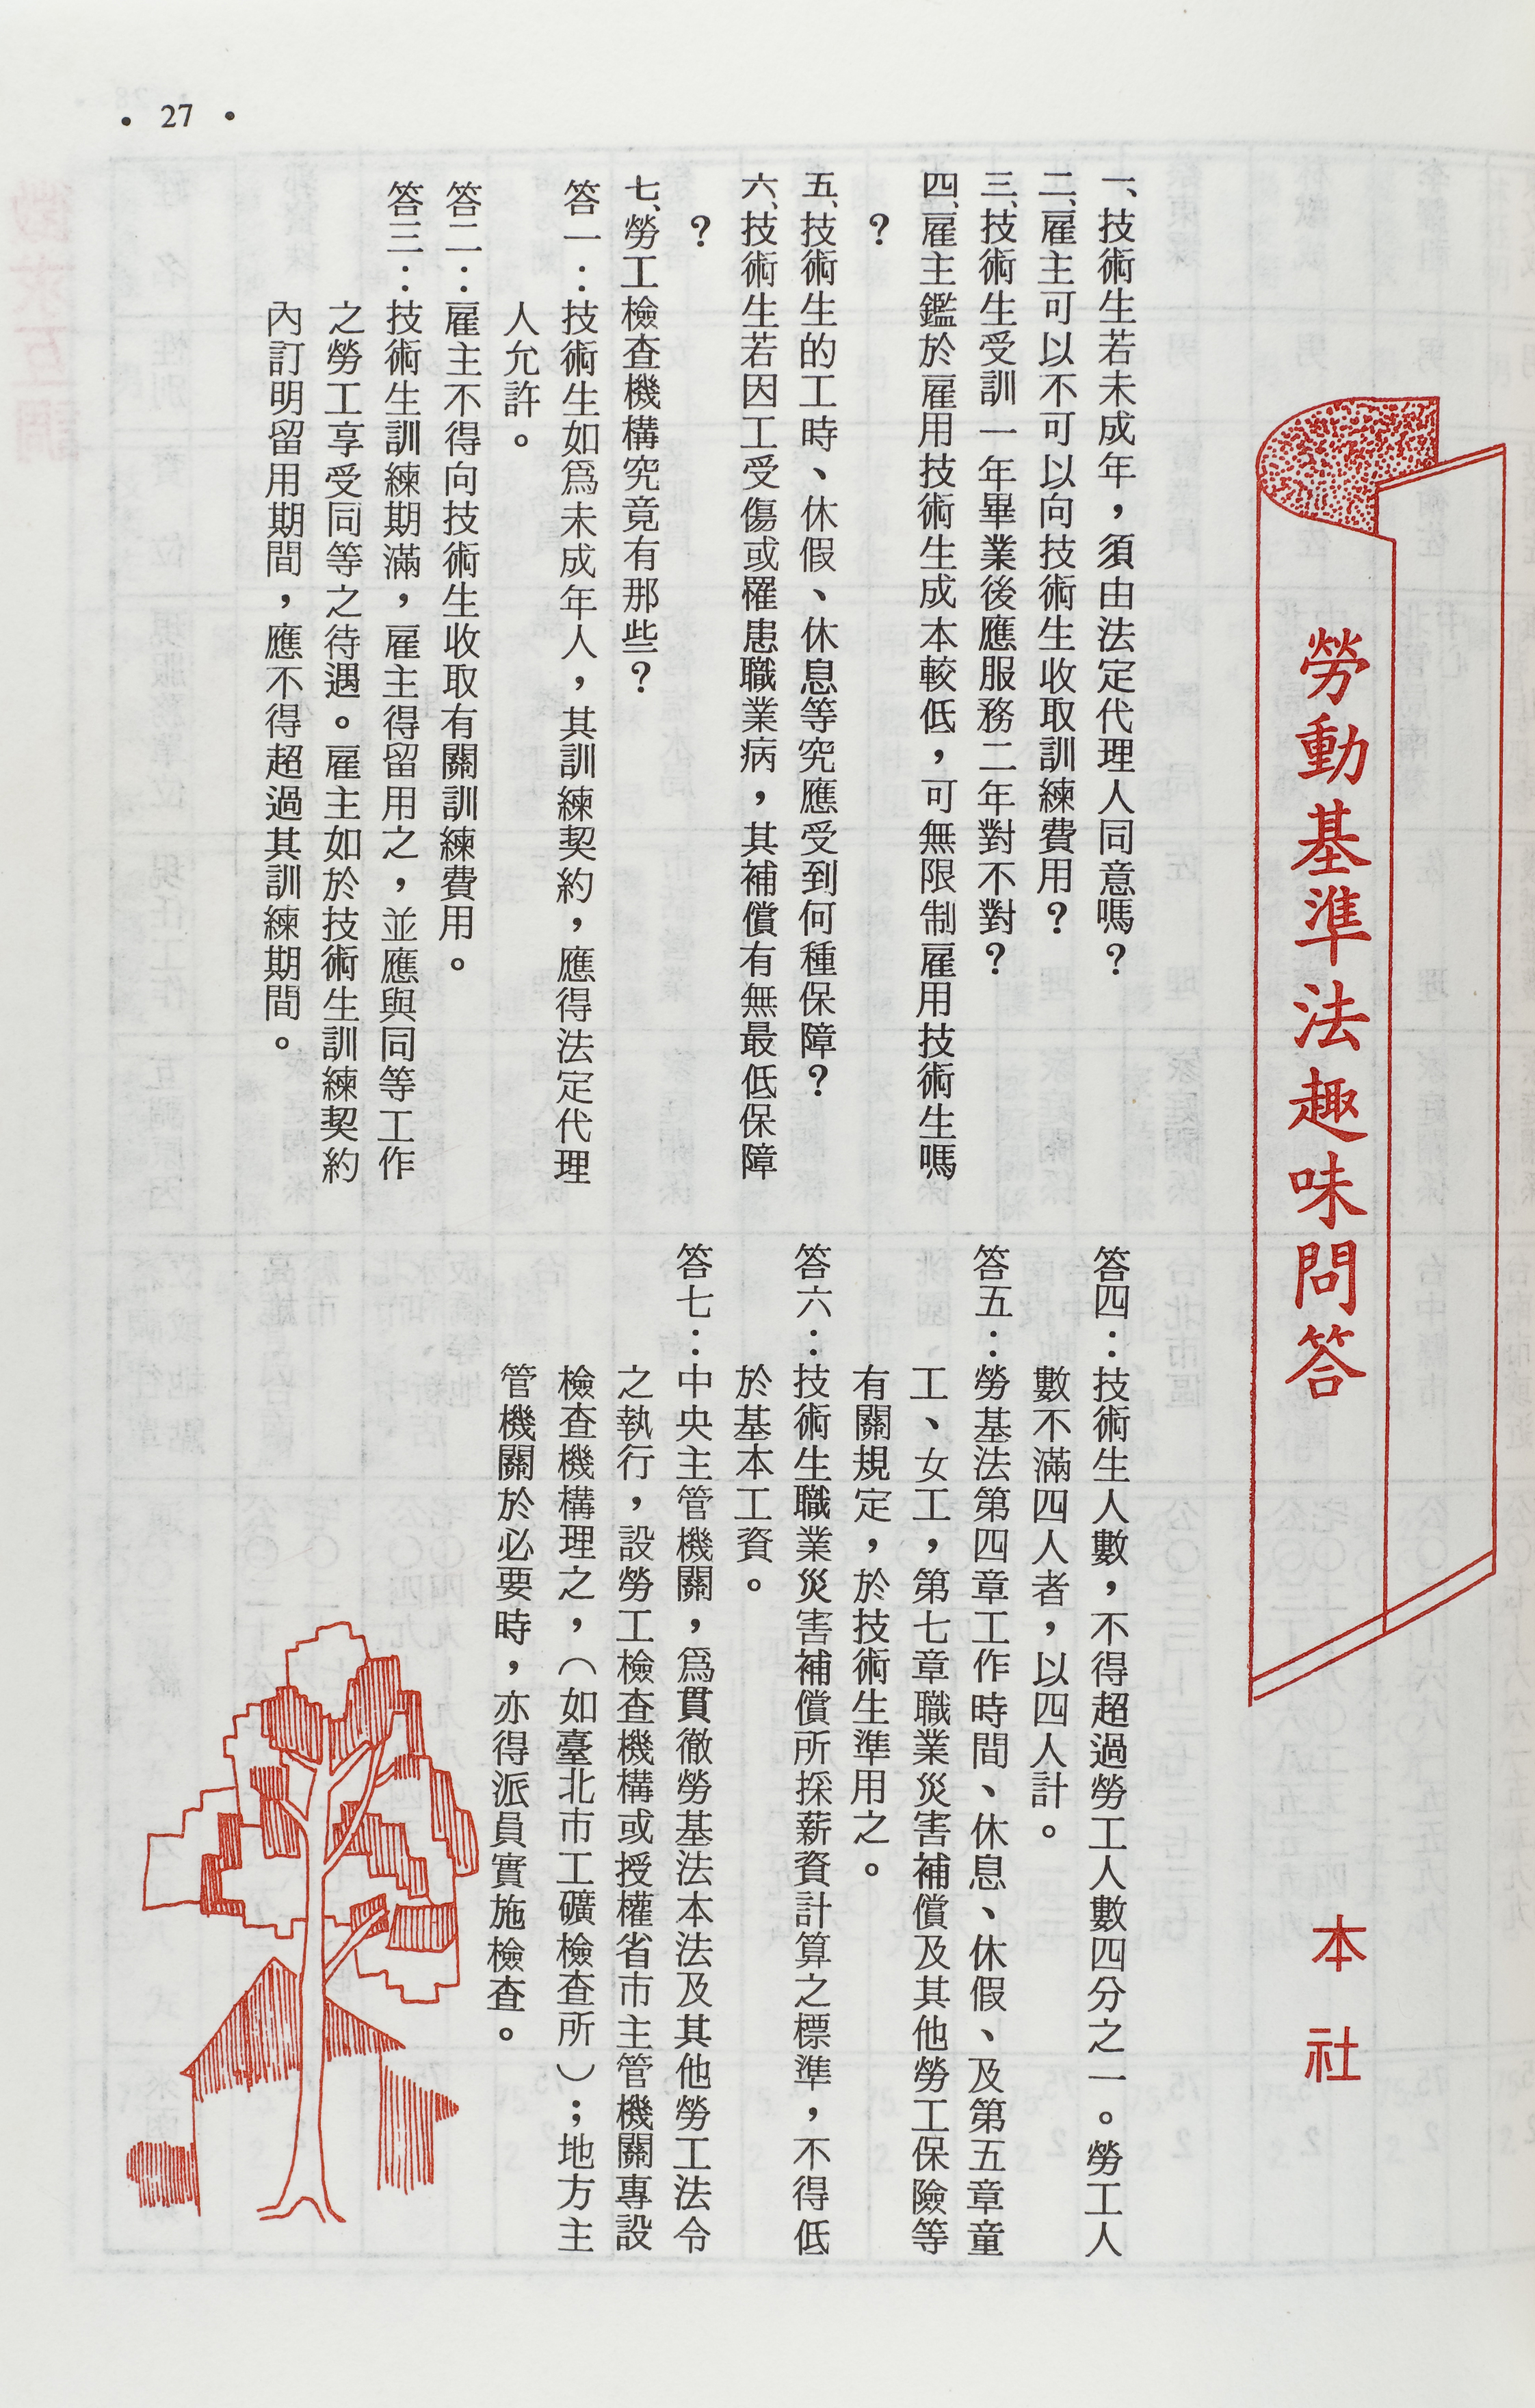 勞動基準法趣味問答
本社
一、技術生若未成年，須由法定代理人同意嗎？
二、雇主可以不可以向技術生收取訓練費用？
三、技術生受訓一年畢業後應服務二年對不對？
四、雇主鑑於雇用技術生成本較低，可無限制雇用技術生嗎
？
五、技術生的工時、休假、休息等究應受到何種保障？
六、技術生若因工受傷或罹患職業病，其補償有無最低保障
？
七、勞工檢查機構究竟有那些？
答一：技術生如爲未成年人，其訓練契約，應得法定代理
人允許。
答二：雇主不得向技術生收取有關訓練費用。
答三：技術生訓練期滿，雇主得留用之，並應與同等工作
之勞工享受同等之待遇。雇主如於技術生訓練契約
內訂明留用期間，應不得超過其訓練期間。
答四：技術生人數，不得超過勞工人數四分之一。勞工人
數不滿四人者，以四人計。
答五：勞基法第四章工作時間、休息、休假、及第五章童
工、女工，第七章職業災害補償及其他勞工保險等
有關規定，於技術生準用之。
答六：技術生職業災害補償所採薪資計算之標準，不得低
於基本工資。
答七：中央主管機關，爲貫徹勞基法本法及其他勞工法令
之執行，設勞工檢查機構或授權省市主管機關專設
檢查機構理之，（如臺北市工礦檢查所）；地方主
管機關於必要時，亦得派員實施檢查。
• 27 •